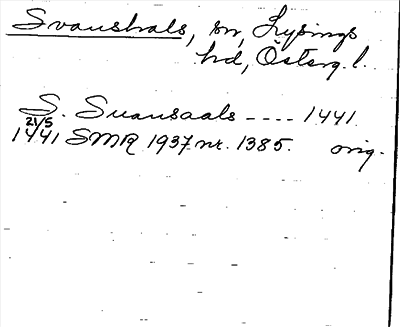 Svanshals, sn, Lysings
hd, Österg. l.
S. Suansaals ---- 1441
21/5
1441 SMR 1937 nr. 1385. orig.